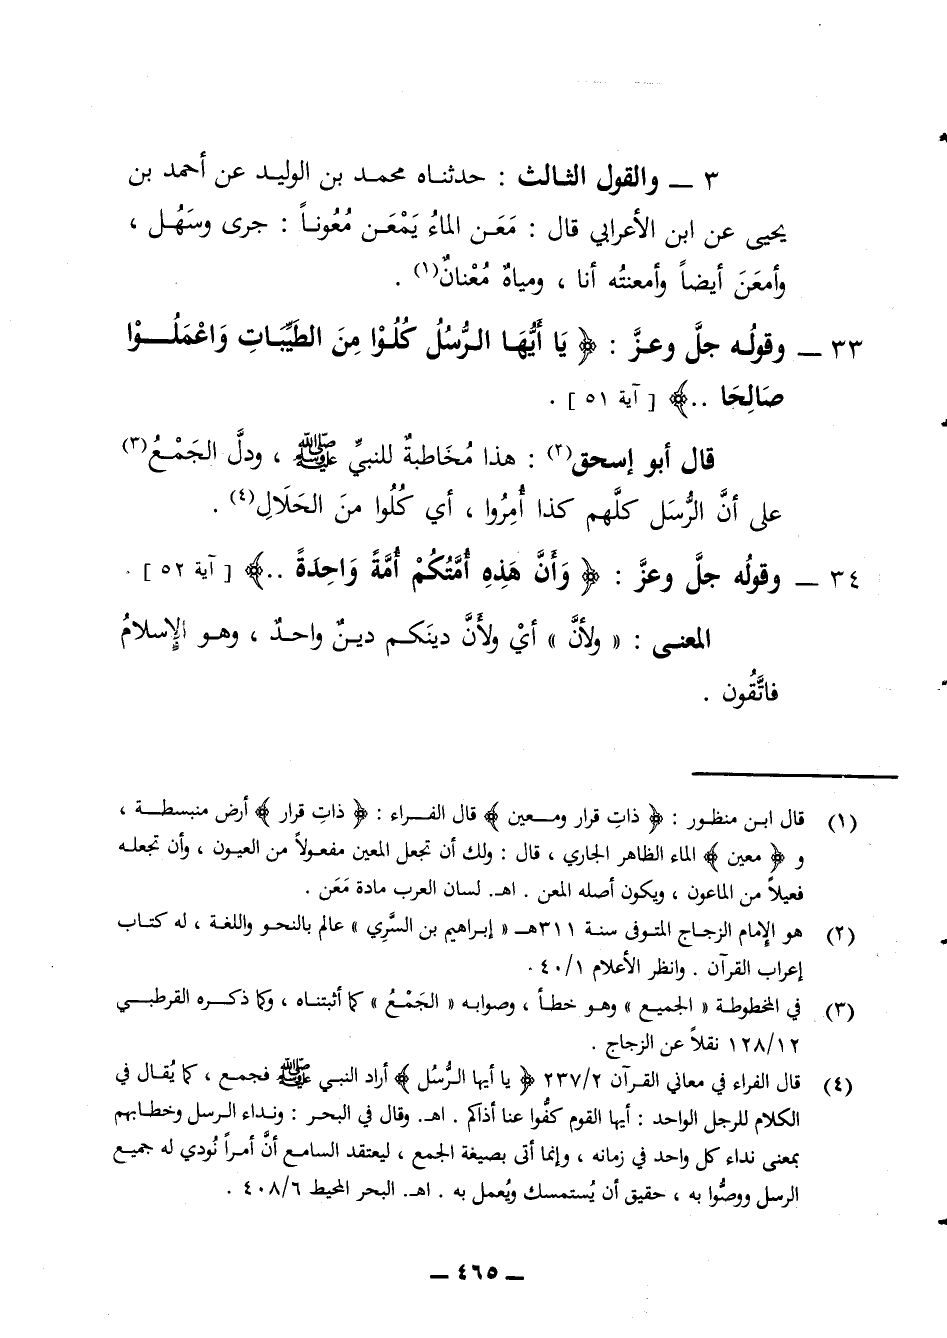 ٣ ــ والقول الثالث : حدثناه محمد بن الوليد عن أحمد بن
يحيى عن ابن الأعرابي قال : مَعَن الماءُ يَمْعَن مُعُوناً : جرى وسَهُل ،
وأمعَنَ أيضاً وأمعنتُه أنا ، ومياهٌ مُعْنانٌ(١) .
٣٣ ــ وقولُه جلَّ وعزَّ : ﴿ يَا أَيُّهَا الرُّسُلُ كُلُوْا مِنَ الطَّيِّبَاتِ وَاعْمَلُوْا
صَالِحَا ..﴾ [ آية ٥١ ] .
قال أبو إسحق(٢) : هذا مُخَاطبةٌ للنبيِّ ﷺ ، ودلَّ الجَمْعُ(٣)
على أنَّ الرُّسَل كلَّهم كذا أُمِرُوا ، أي كُلُوا منَ الحَلَالِ(٤) .
٣٤ ــ وقولُه جلَّ وعزَّ : ﴿ وَأَنَّ هَذِهِ أُمَّتُكُمْ أُمَّةً وَاحِدَةً ..﴾ [ آية ٥٢ ] .
المعنى : « ولأنَّ » أيْ ولأَنَّ دينَكم دينٌ واحدٌ ، وهو الإِسلامُ
فاتَّقُون .
(١) قال ابن منظور : ﴿ ذاتِ قرار ومعين ﴾ قال الفراء : ﴿ ذاتِ قرار ﴾ أرض منبسطة ،
و ﴿ معين ﴾ الماء الظاهر الجاري ، قال : ولك أن تجعل المعين مفعولاً من العيون ، وأن تجعله
فعيلاً من الماعون ، ويكون أصله المعن . اهـ. لسان العرب مادة مَعَن .
(٢) هو الإِمام الزجاج المتوفى سنة ٣١١هـ « إبراهيم بن السَّري » عالم بالنحو واللغة ، له كتاب
إعراب القرآن . وانظر الأعلام ٤٠/١ .
(٣) في المخطوطة « الجميع » وهو خطأ ، وصوابه « الجَمْعُ » كما أثبتناه ، وكما ذكره القرطبي
١٢٨/١٢ نقلاً عن الزجاج .
(٤) قال الفراء في معاني القرآن ٢٣٧/٢ ﴿ يا أيها الرُّسُل ﴾ أراد النبي ﷺ فجمع ، كما يُقال في
الكلام للرجل الواحد : أيها القوم كفُّوا عنا أذاكم . اهـ. وقال في البحر : ونداء الرسل وخطابهم
بمعنى نداء كل واحد في زمانه ، وإنما أتى بصيغة الجمع ، ليعتقد السامع أنَّ أمراً نُودي له جميع
الرسل ووصُّوا به ، حقيق أن يُستمسك ويُعمل به . اهـ. البحر المحيط ٤٠٨/٦ .
ــ ٤٦٥ ــ